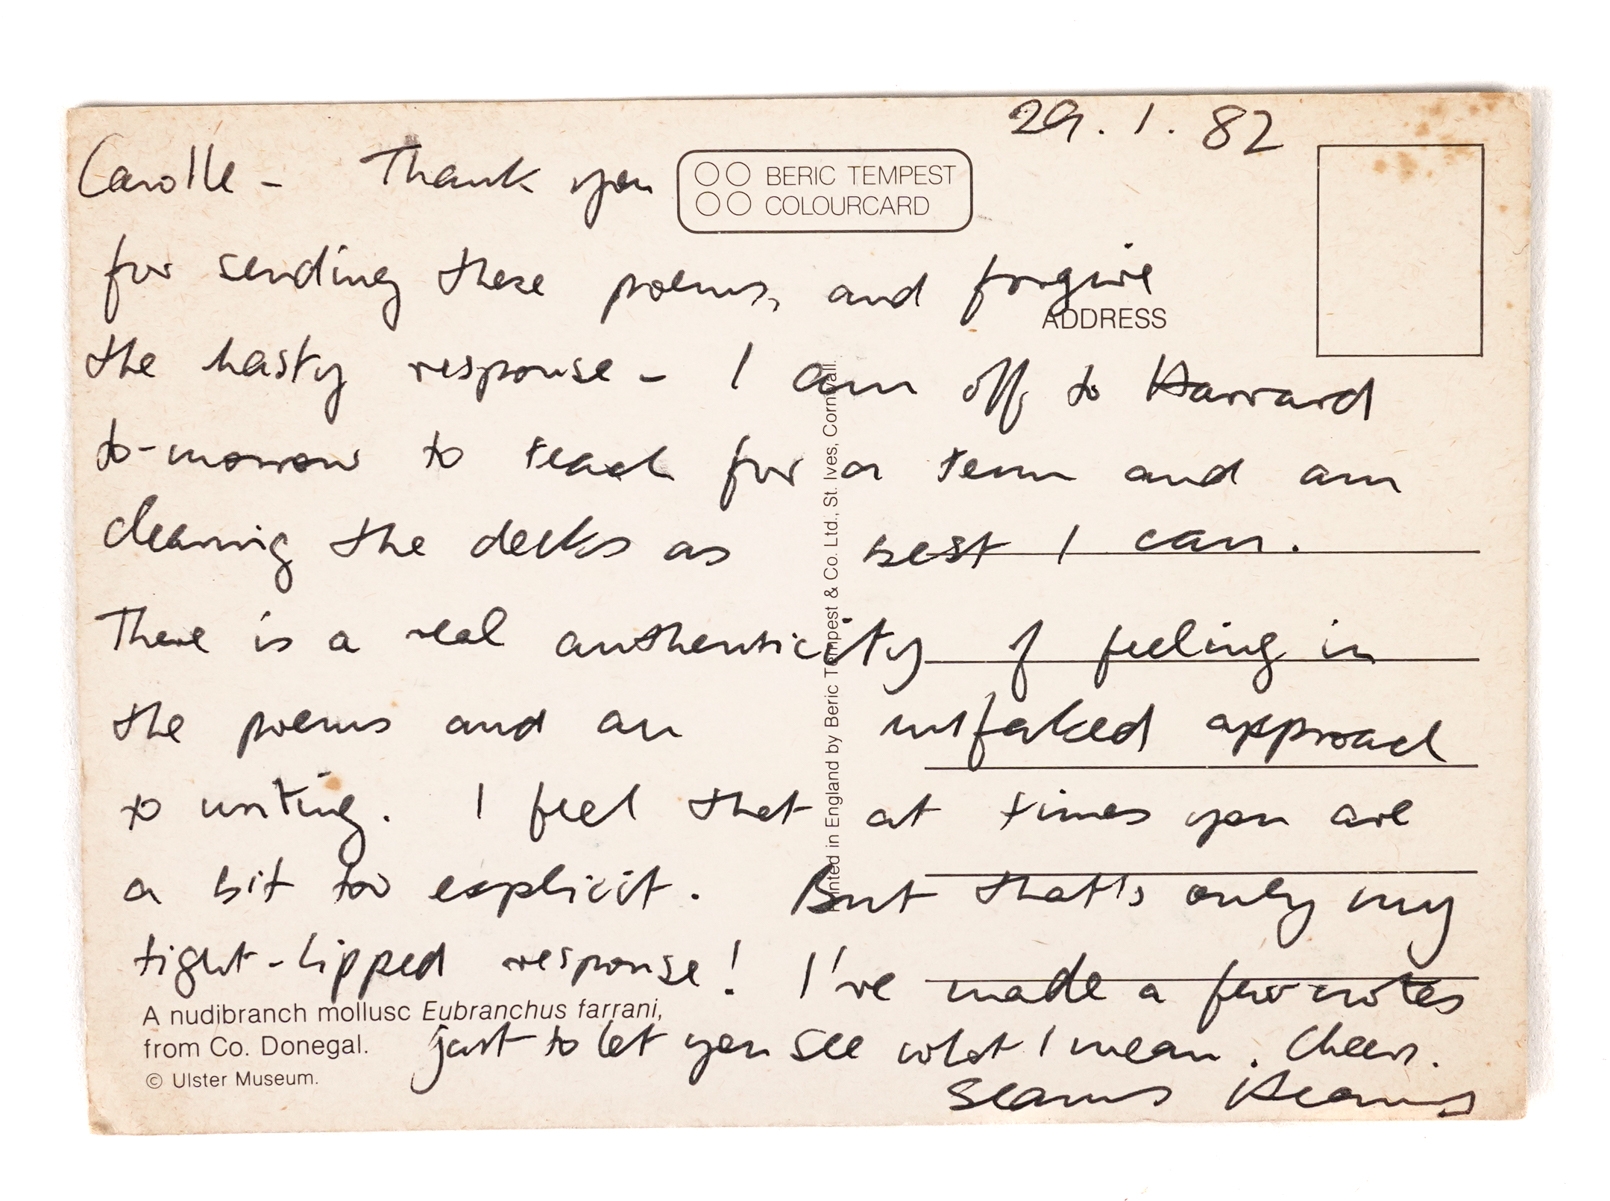 29.1.82
Carolle - Thank you
BERIC TEMPEST
COLOURCARD
for sending these poems, and forgive
ADDRESS
the hasty response - I am off to Harvard
to-morrow to teach for a term and am
clearing the decks as best I can.
There is a real authenticity of feeling in
the poems and an unfaked approach
to writing. I feel that at times you are
a bit too explicit. But that's only my
tight-lipped response! I've made a few notes
just to let you see what I mean. Cheers.
Seamus Heaney
A nudibranch mollusc Eubranchus farrani,
from Co. Donegal.
© Ulster Museum.
Printed in England by Beric Tempest & Co. Ltd., St. Ives, Cornwall.